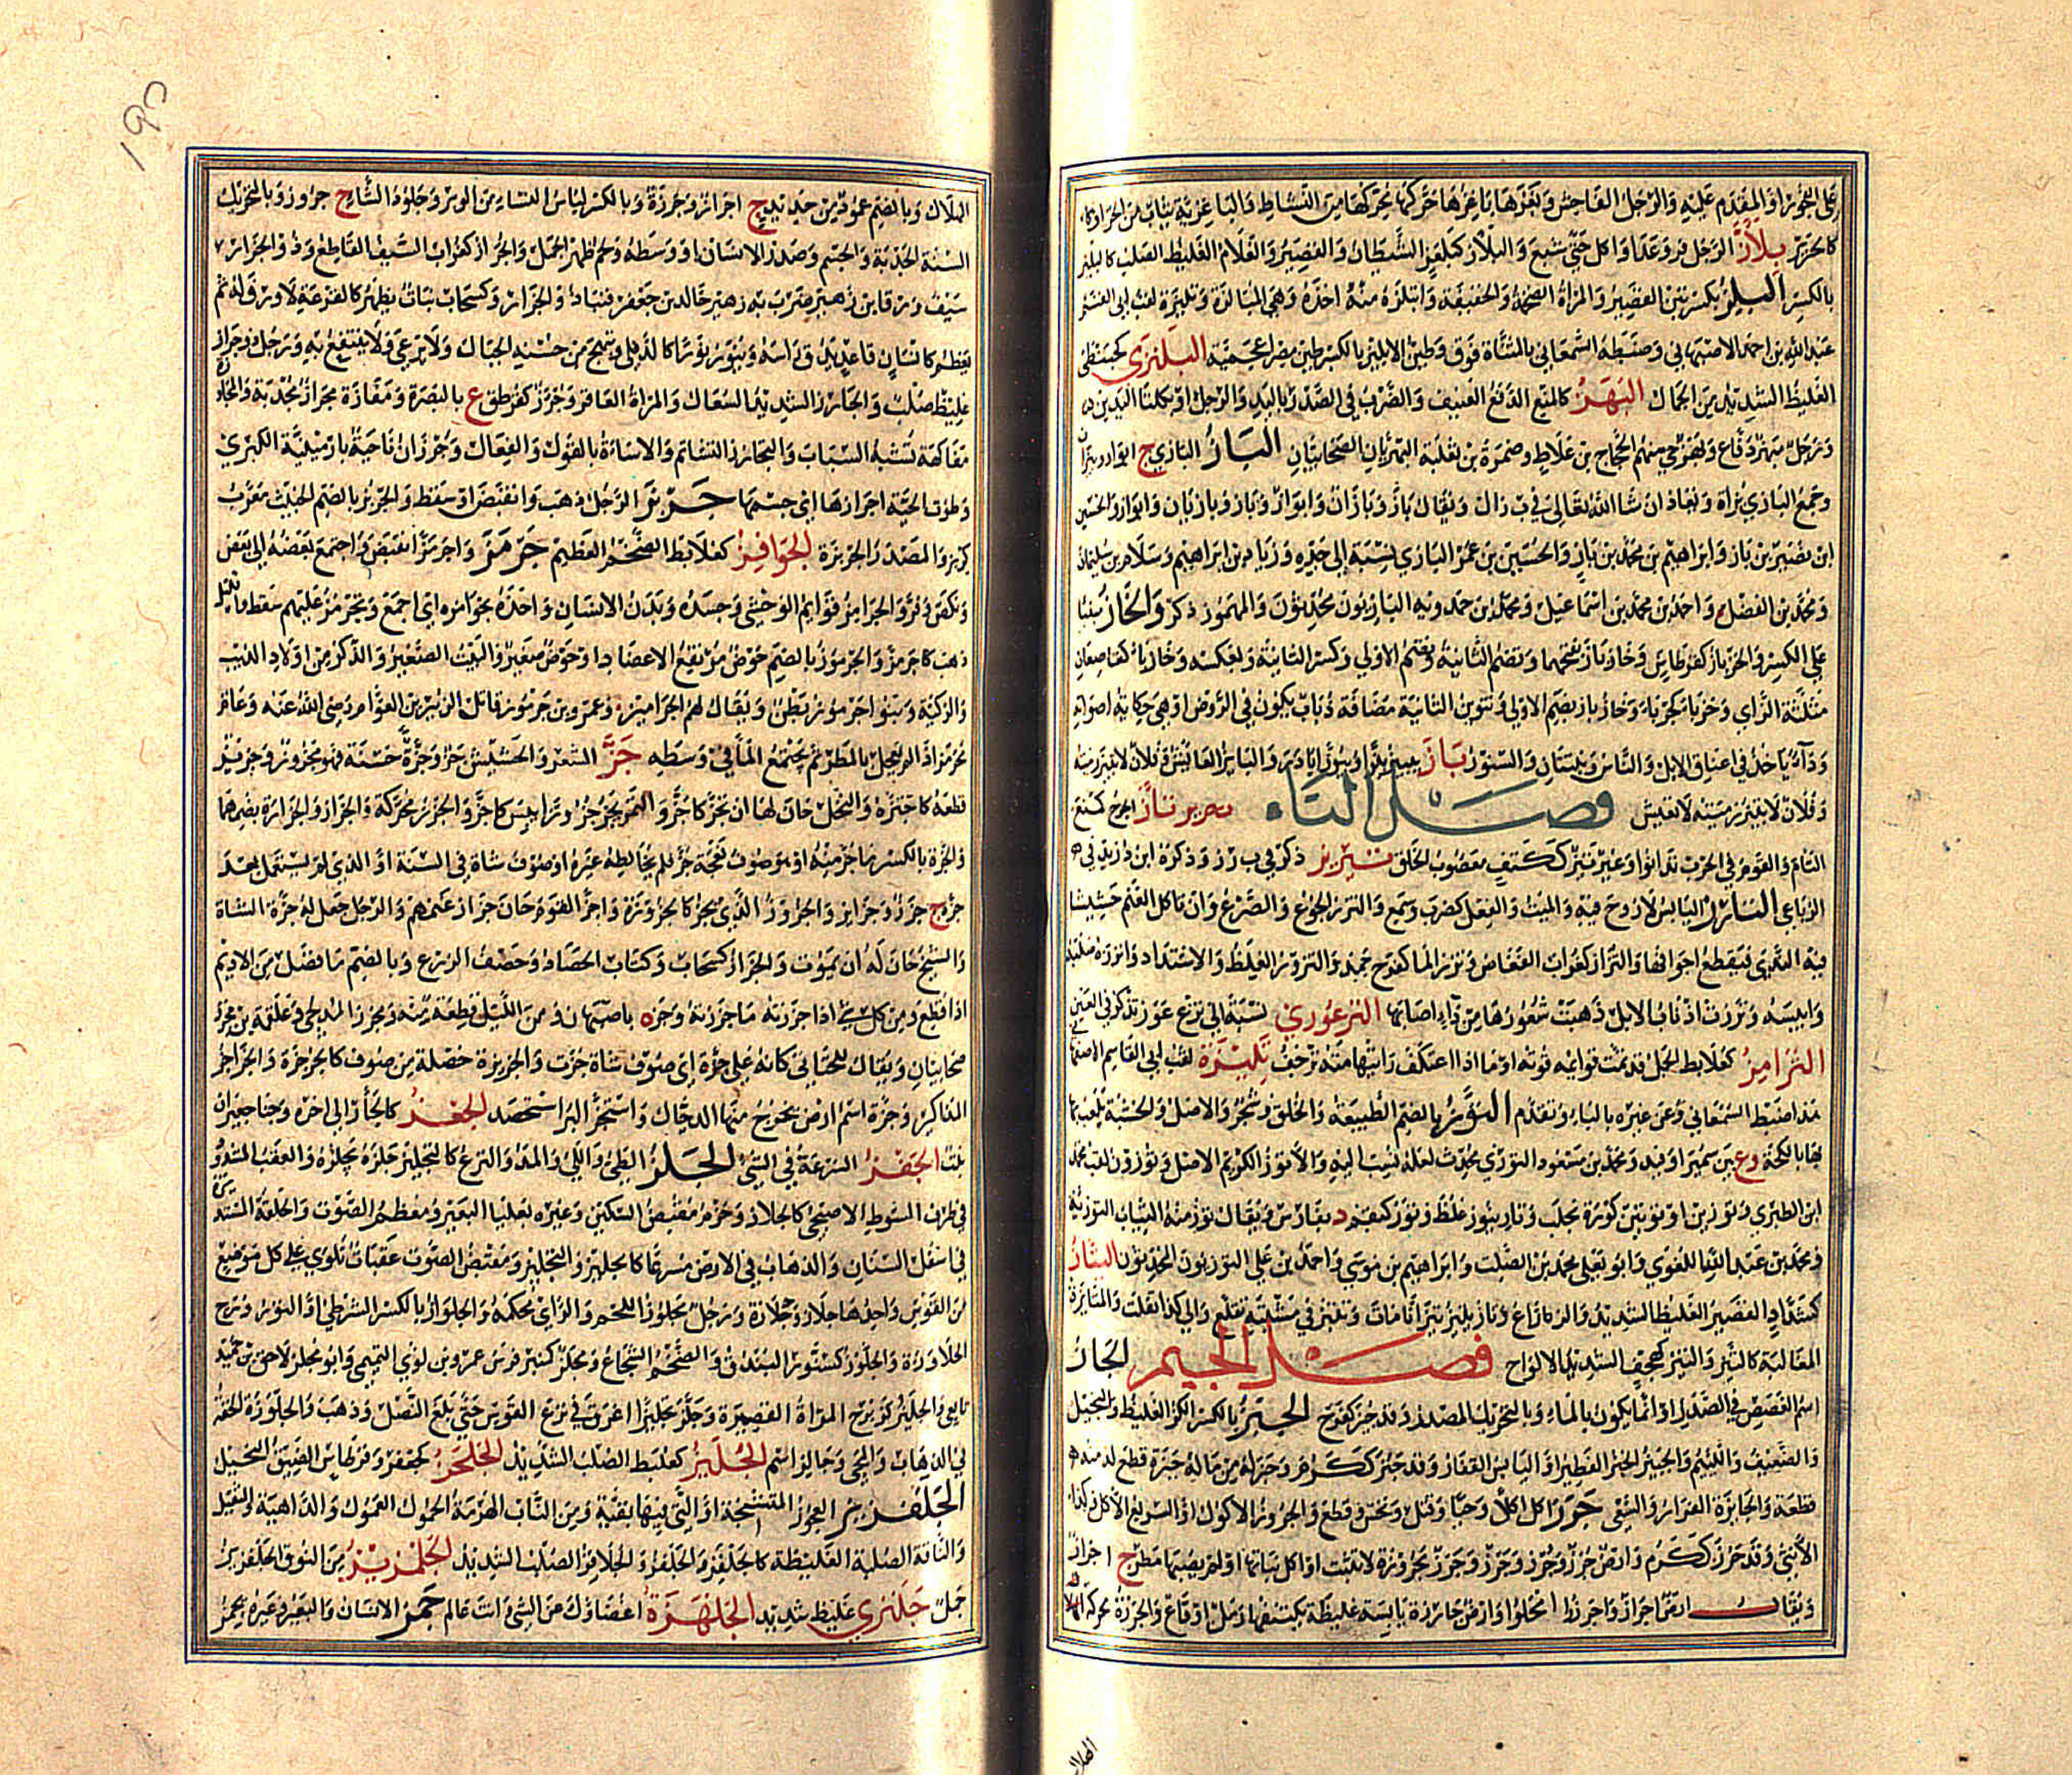 على الفجور او المقدم عليه والرجل الفاحش وبغزها باغزها حركها محركها من النشاط والباغزية ثياب من الخز او كا
كالحرير بلأز الرجل فر وعدا واكل حتى شبع والبلأز كبلعز الشيطان والقصير والغلام الغليظ الصلب كالبلئز
بالكسر البلز بكسرتين القصير والمرأة الضخمة والخفيفة وابتلزه منه اخذه وهي المبالزة وتليزة لقب ابى القسم
عبد الله بن احمد الاصبهاني وضبطه السمعاني بالمثناة فوق وطين الابليز بالكسر طين مصر اعجمية البلنزى كحبنطى
الغليظ الشديد من الجمال البهز كالمنع الدفع العنيف والضرب في الصدر باليد والرجل او بكلتا اليدين
ورجل مبهز دفاع وبهز حي منهم الحجاج بن علاط وضمرة بن ثعلبة البهزيان الصحابيان الباز البازي ج ابواز وبيزان
وجمع البازي بزاة ويعاد ان شا الله تعالى في ب ز ى ويقال باز وبازان وابواز وباز وبازيان وابواز والحسين
ابن نصير بن باز وابراهيم بن محمد بن باز والحسين بن عمر البازي نسبة الى جده وزياد بن ابراهيم وسلام بن سليمان
ومحمد بن الفضل واحمد بن محمد بن اسماعيل ومحمد بن حمدويه البازيون محدثون والمهموز ذكر والخازباز مبنيا
على الكسر والخزباز كقرطاس وخازباز بفتحهما وتضم الثانية وبضم الاولى وكسر الثانية وبعكسه وخازباء كقاصعاء
مثلثة الزاي وخزباء كحرباء وخازباز بضم الاولى وتنوين الثانية مضافة ذباب يكون في الروض او هي حكاية اصواته
وداء ياخذ في اعناق الابل والناس ونبتتان والسنور باز يبيز بيزا وبيوزا باد والبايز العائش وفلان لا تبيز رميته
وفلان لا تبيز رميته لا تعيش فصل التاء تأز الجرح كمنع
التأم والقوم في الحرب تدانوا وعير تئز ككتف معصوب الخلق تبريز ذكر في ب ر ز وذكره ابن دريد في
الرباعي التارز اليابس لا روح فيه والميت والفعل كضرب وسمع والترز الجوع والصرع وان تاكل الغنم حشيشا
فيه الندى فيقطع اجوافها والتراز كغراب القعاص وترز الما كفرح جمد والتروز الغلظ والاشتداد واترزه صلبه
وايبسه وترزت اذناب الابل ذهبت شعورها من داء اصابها الترعوزي نسبة الى ترع عوز تذكر في العين
الترامز كعلابط الجمل قد تمت قوايمه قوته او ما اذا اعتلف رايت هامته ترجف تليزة لقب ابي القاسم الاصبهاني
هذا ضبط السمعاني وعن غيره بالباء وتقدم التوز بالضم الطبيعة والخلق وشجر والاصل والخشبة يلعب بها
بالكجة وع بين سميرا وفيد ومحمد بن مسعود التوزي محدث لعله نسب اليه والاتوز الكريم الاصل وتوزون لقب محمد
ابن الطبري وتوزين او توتيزين كورة بحلب وتاز يتوز غلظ وتوز كبقم د بفارس ويقال توج منه الثياب التوزية
ومحمد بن عبد الله اللغوي وابو يعلى محمد بن الصلت وابراهيم بن موسى واحمد بن علي التوزيون المحدثون التياز
كشداد القصير الغليظ الشديد والزماز وتاز يتيز تيزانا مات وتتيز في مشيته تقلع والى كذا انفلت والمتايزة
المغالبة كالتيز والتيز كهجف الشديد الالواح فصل الجيم الجاز
اسم الغصص في الصدر او انما يكون بالماء وبالتحريك المصدر وقد جئز كفرح الجبز بالكسر الكز الغليظ والبخيل
والضعيف واللئيم والجبيز الخبز الفطير او اليابس القفار وقد جبز ككرم وجبز له من ماله جبزة قطع له منه
قطعة والجابزة الفرار والسعي جرز اكل اكلا وحيا وقتل ونخس وقطع والجروز الاكول او السريع الاكل وكذا
الانثى وقد جرز ككرم وارض جرز وجرز وجرز وجرز ومجروزة لا تنبت او اكل نباتها او لم يصبها مطر ج اجراز
ويقال ارض اجراز واجرزوا امحلوا وارض جارزة يابسة غليظة يكتنفها رمل او قاع والجرزة محركة الهلاك
الهلاك
١٩٥
الهلاك وبالضم عمود من حديد ج اجراز وجرزة وبالكسر لباس النساء من الوبر وجلود الشاء ج جروز وبالتحريك
السنة الجدبة والجسم وصدر الانسان او وسطه ولحم ظهر الجمل والجراز كغراب السيف القاطع وذو الجراز
سيف ورقا بن زهير ضرب به زهير خالد بن جعفر فنبا ذو الجراز وكسحاب نبات يظهر كالقرعة لا ورق له ثم
يعظم كانسان قاعد ثم يرق راسه وينور نورا كالدفلى وتبهج من حسنه الجبال ولا يرعى ولا ينتفع به ورجل ذو جراز
غليظ صلب والجارز الشديد السعال والمراة العاقر وجرز كقرطق ع بالبصرة ومفازة مجراز مجدبة والمجارزة
مفاكهة تشبه السباب والتجارز التشاتم والاساءة بالقول والفعال وجرزان ناحية بارمينية الكبرى
وطوت الحية اجرازها اي جسمها جربز الرجل ذهب وانقبض او سقط والجربز بالضم الخبيث معرب
كربز والمصدر الجربزة الجرافز كعلابط الضخم العظيم جرمز واجرمز انقبض واجتمع بعضه الى بعض
ونكص وفر والجراميز قوايم الوحشي وجسده وبدن الانسان واخذه بجراميزه اي اجمع وتجرمز عليهم سقط والليل
ذهب كاجرمز والجرموز بالضم حوض مرتفع الاعضاد او حوض صغير والبيت الصغير والذكر من اولاد الذيب
والركية وبنو جرموز بطن ويقال لهم الجراميز وعمرو بن جرموز قاتل الزبير بن العوام رضي الله عنه وعام
مجرمز اذا لم يعجل بالمطر ثم يجتمع الماء في وسطه جز الشعر والحشيش جزا وجزة حسنة فهو مجزوز وجزيز
قطعه كاجتزه والنخل حان لها ان تجز كاجز والتمر يجز جزوزا يبس كاجز والجزز محركة والجزاز والجزازة بضمهما
والجزة بالكسر ما جز منه او هو صوف نعجة جز فلم يخالطه غيره او صوف شاة في السنة او الذي لم يستعمل بعد
جزه ج جزز وجزايز والجزوز الذي يجز كالجزوزة واجز القوم حان جزاز غنمهم والرجل جعل له جزة الشاة
والشيخ حان له ان يموت والجزاز كسحاب وكتاب الحصاد وعصف الزرع وبالضم ما فضل من الاديم
اذا قطع ومن كل شي اذا جززته ما جززته وجزه باصبهان ومن الليل قطعة منه ومجزز المدلجي وعلقمة بن مجزز
صحابيان ويقال للحياني كانه على جزة اي صوف شاة جزت والجزيزة خصلة من صوف كالجزجزة والجزاجز
المذاكير وجزة اسم ارض يخرج منها الدجال واستجز البر استحصد الجعز كالجأز الى اخره
الجفز السرعة في المشي الجلز الطي واللي والمد والنزع كالتجليز جلزه يجلزه والعقب المشدود
في طرف السوط الاصبحي كالجلاز وحزم مقبض السكين وغيره بعلباء البعير ومعظم السوط والحلقة المستديرة
في اسفل السنان والذهاب في الارض مسرعا كالجليز والتجليز ومقبض السوط عقبات تلوى على كل موضع
من القوس واحدها جلاز وجلازة ورجل مجلوز اللحم والراي محكمه والجلواز بالكسر الشرطي او الثؤرور ج
الجلاوزة والجلوز كسنور البندق والضخم الشجاع ومجلز كمنبر فرس عمرو بن لؤي التميمي وابو مجلز لاحق بن حميد
تابعي والجلئز كزبرج المراة القصيرة وجلز تجليزا اغرق في نزع القوس حتى بلغ النصل وذهب والجلوزة الخفة
في الذهاب والمجي وجالز اسم الجلبز كعلبط الصلب الشديد الجلحز كجعفر وقرطاس الضيق البخيل
الجلفزيز العجوز المتشنجة او التي فيها بقية ومن الناب الهرمة الحمول العمول والداهية والثقيل
والناقة الصلبة الغليظة كالجلفز والجلفز والجلافز الصلب الشديد الجلمزيز من النوق الجلفزيز
جمل جلنزى غليظ شديد الجلهزة اغضاؤك عن الشي وانت عالم جمز الانسان والبعير وغيره يجمز